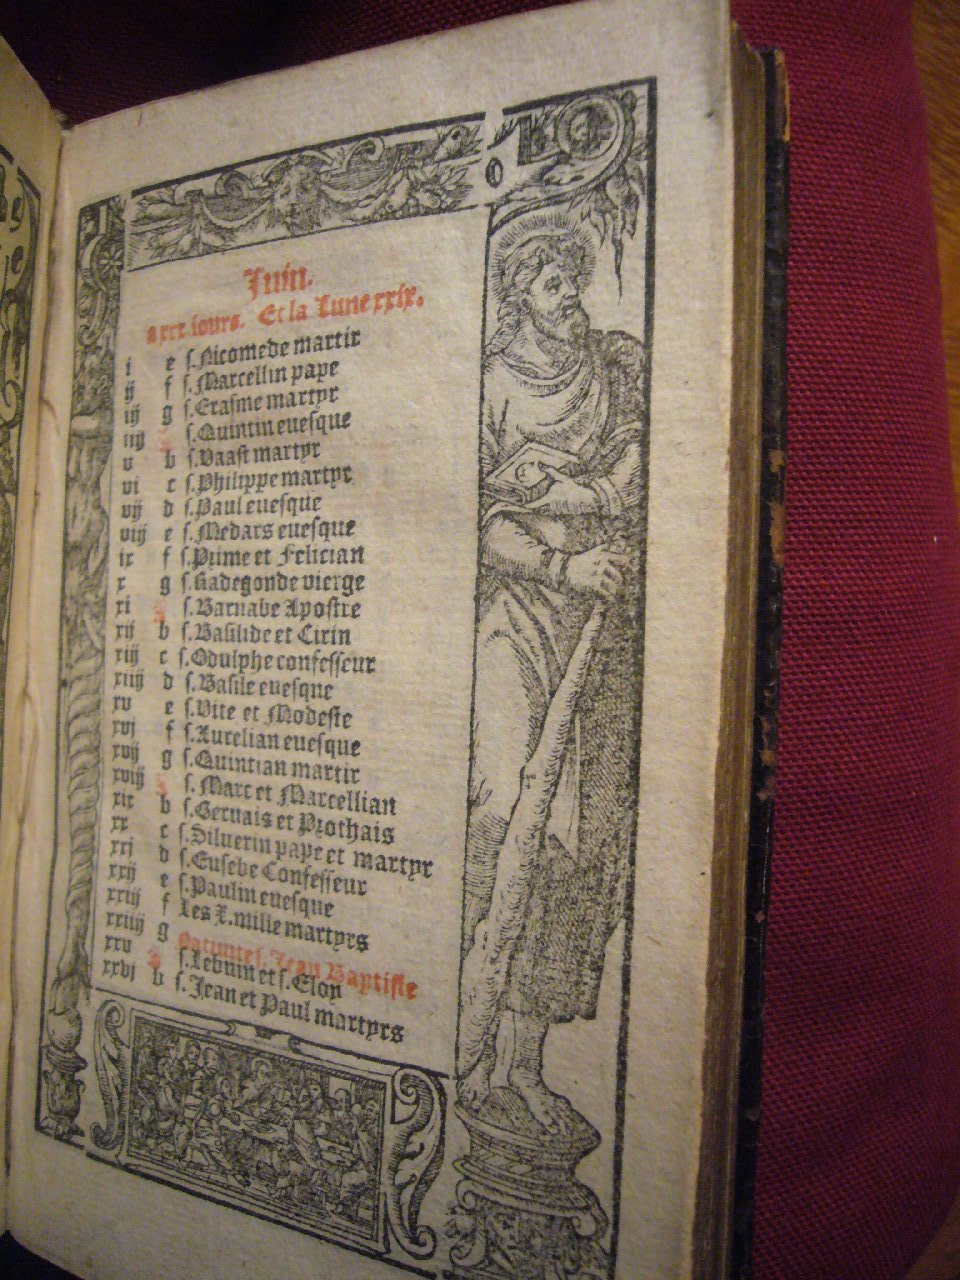 Juin.
a xxx iours. Et la Lune xxix.
i e s.Nicomede martir
ij f s.Marcellin pape
iij g s.Erasme martyr
iiij s.Quintin euesque
v b s.Vaast martyr
vi c s.Philippe martyr
vij d s.Paul euesque
viij e s.Medars euesque
ix f s.Prime et Felician
x g s.Radegonde vierge
xi s.Barnabe Apostre
xij b s.Basilide et Cirin
xiij c s.Odulphe confesseur
xiiij d s.Basile euesque
xv e s.Vite et Modeste
xvj f s.Aurelian euesque
xvij g s.Quintian martir
xviij s.Marc et Marcellian
xix b s.Geruais et Prothais
xx c s.Siluerin pape et martyr
xxj d s.Eusebe Confesseur
xxij e s.Paulin euesque
xxiij f Les X.mille martyrs
xxiiij g s.Jean Baptiste
xxv s.Lebuin et s.Eloy
xxvj b s.Jean et Paul martyrs